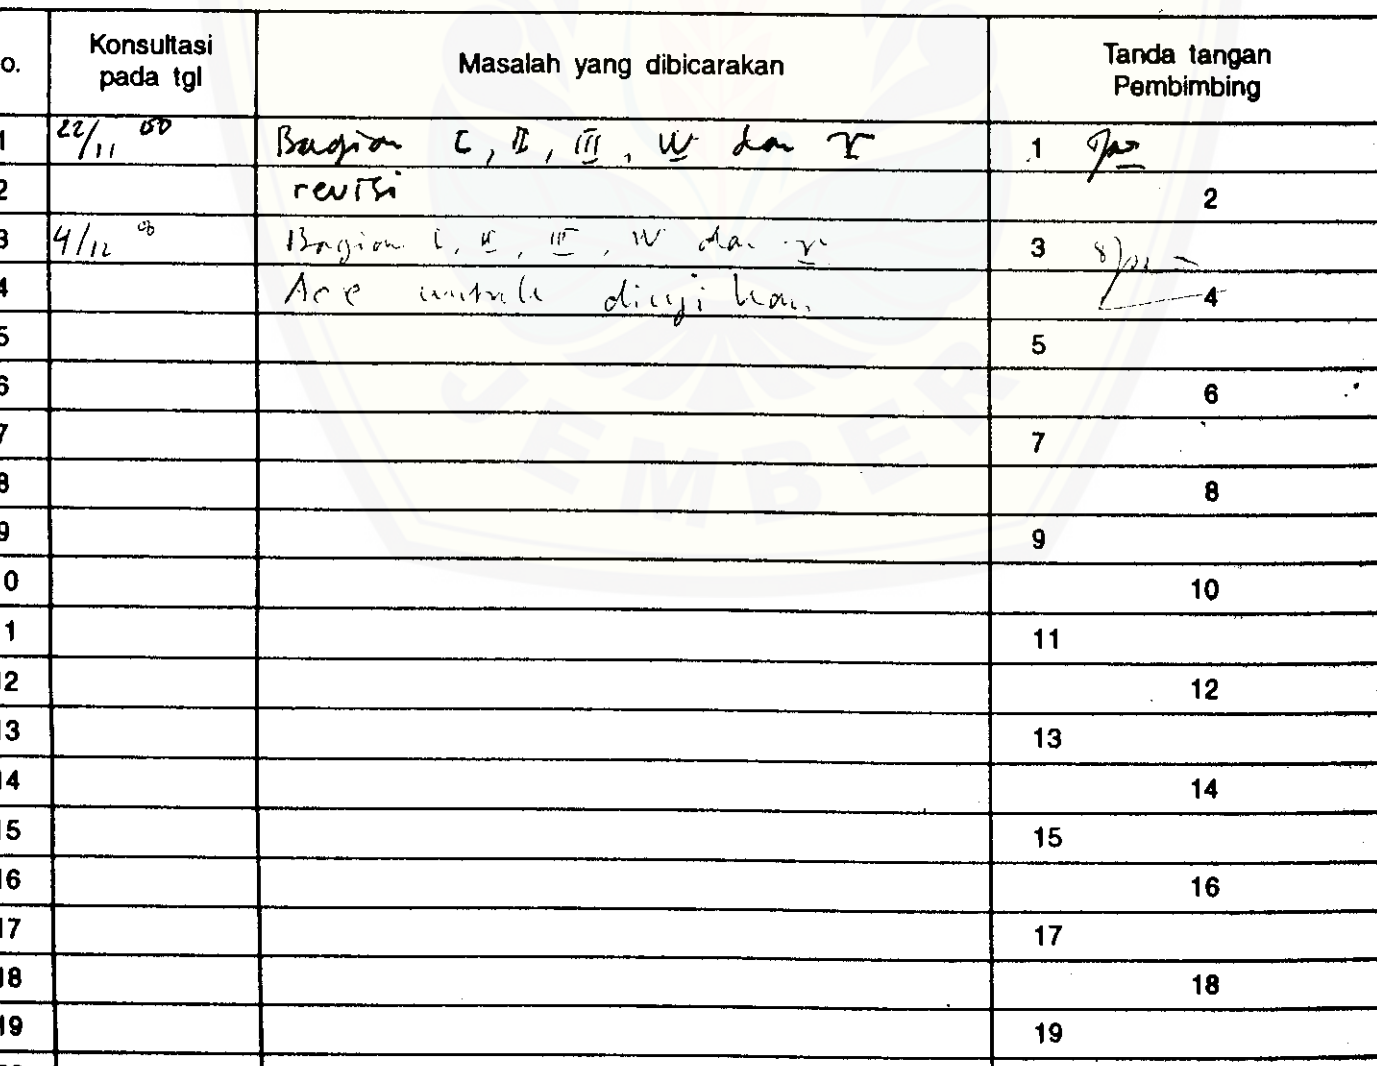 o.
Konsultasi
pada tgl
Masalah yang dibicarakan
Tanda tangan
Pembimbing
1 22/11 00 Bagian I, II, III, IV dan V 1
2 revisi 2
3 4/12 00 Bagian I, II, III, IV dan V 3
4 Acc untuk diujikan. 4
5 5
6 6
7 7
8 8
9 9
0 10
1 11
12 12
13 13
14 14
15 15
16 16
17 17
18 18
19 19
JEMBER